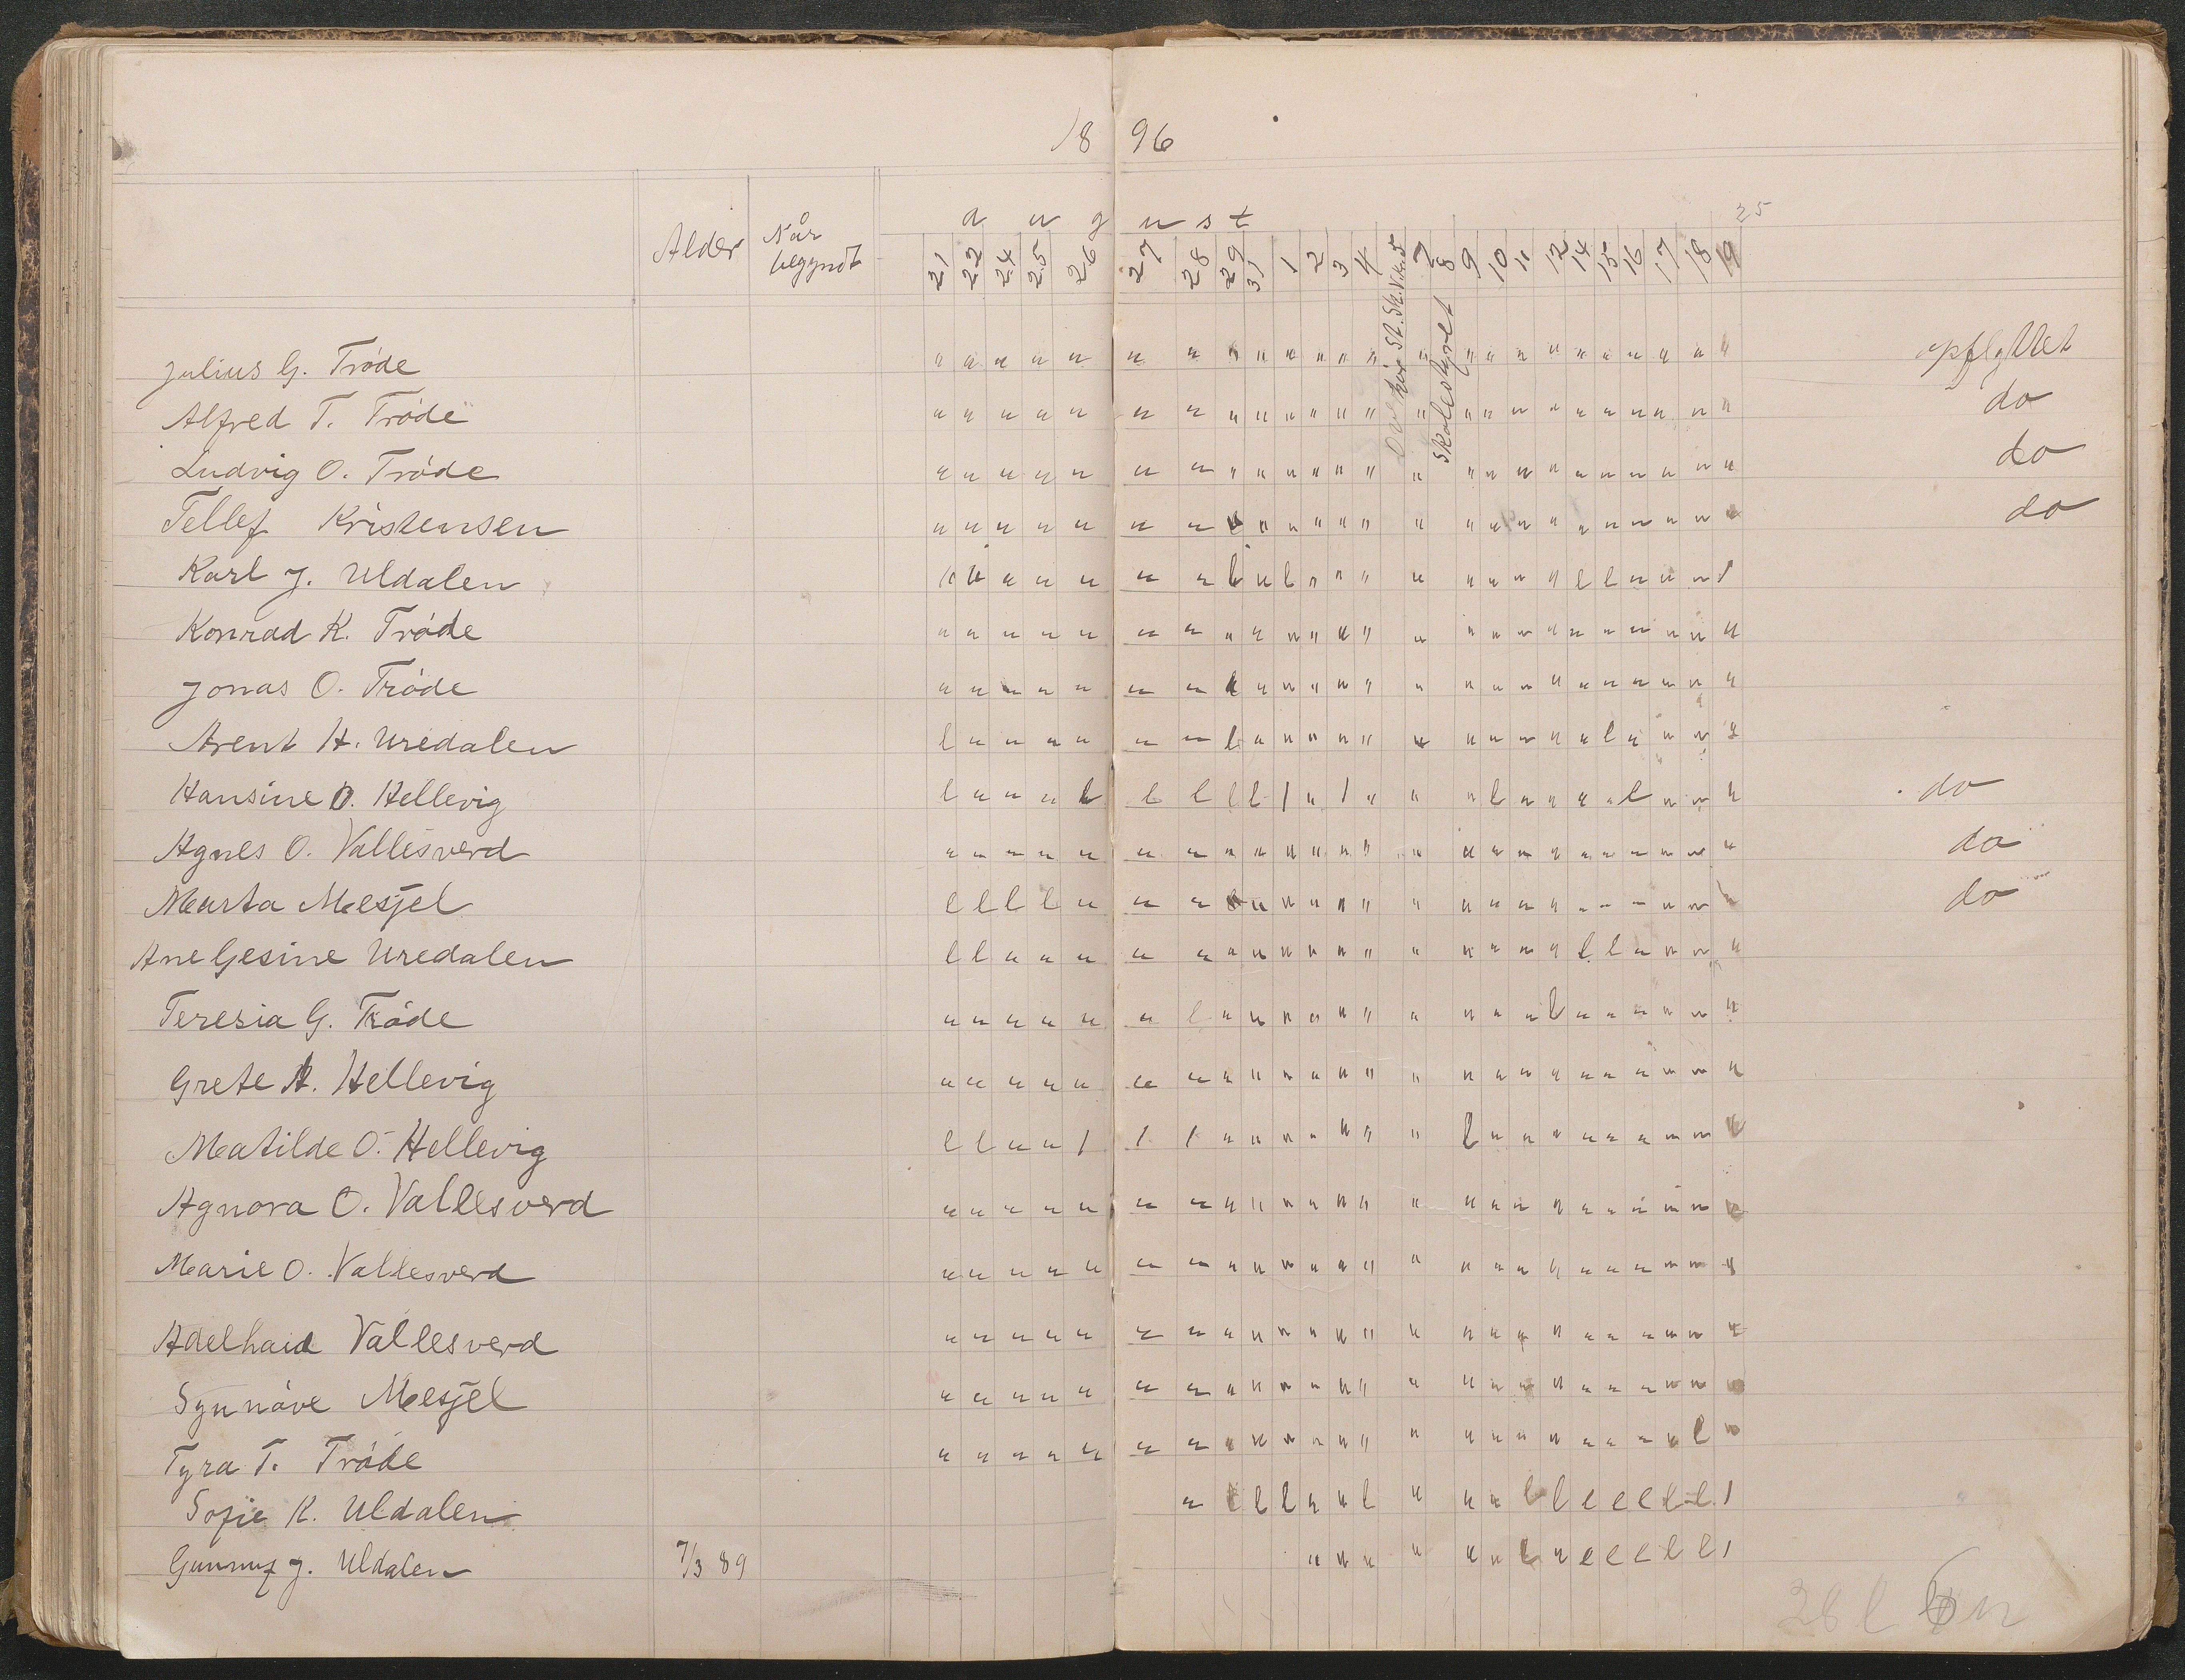 18 96
25
august
Alder Når begyndt 21 22 24 25 26 27 28 29 31 1 2 3 4 5 7 8 9 10 11 12 14 15 16 17 18 19
Skolestyret
Julius G. Trøde " " " " " " " " " " " " " " " " " " " " " " " " opflyttet
Alfred T. Trøde " " " " " " " " " " " " " " " " " " " " " " " " do
Ludvig O. Trøde " " " " " " " " " " " " " " " " " " " " " " " " do
Tellef Kristensen " " " " " " " " " " " " " " " " " " " " " " " " do
Karl J. Uldalen " " " " " " " l " l " " " " " " " " l l " " " l
Konrad K. Trøde " " " " " " " " " " " " " " " " " " " " " " " "
Jonas O. Trøde " " " " " " " " " " " " " " " " " " " " " " " "
Arent H. Uredalen l " " " " " " l " " " " " " " " " " " l " " " "
Hansine O. Hellevig l " " " l l l l l l " l " " " l " " " " l " " " do
Agnes O. Vallesverd " " " " " " " " " " " " " " " " " " " " " " " " do
Marta Mesjel l l l l " " " " " " " " " " " " " " " " " " " " do
Ane Gesine Uredalen l l " " " " " " " " " " " " " " " " l l " " " "
Teresia G. Trøde " " " " " " l " " " " " " " " " " l " " " " " "
Grete A. Hellevig " " " " " " " " " " " " " " " " " " " " " " " "
Matilde O. Hellevig l l " " l l l " " " " " " " l " " " " " " " " "
Agnora O. Vallesverd " " " " " " " " " " " " " " " " " " " " " " " "
Marie O. Vallesverd " " " " " " " " " " " " " " " " " " " " " " " "
Adelhaid Vallesverd " " " " " " " " " " " " " " " " " " " " " " " "
Synnøve Mesjel " " " " " " " " " " " " " " " " " " " " " " " "
Tyra T. Trøde " " " " " " " " " " " " " " " " " " " " " " l "
Sofie K. Uldalen " l l l " " l " " " l l l l l l l l
Gunnuf J. Uldalen 7/3 89 " " " " " " l " l l l l l l
28 l